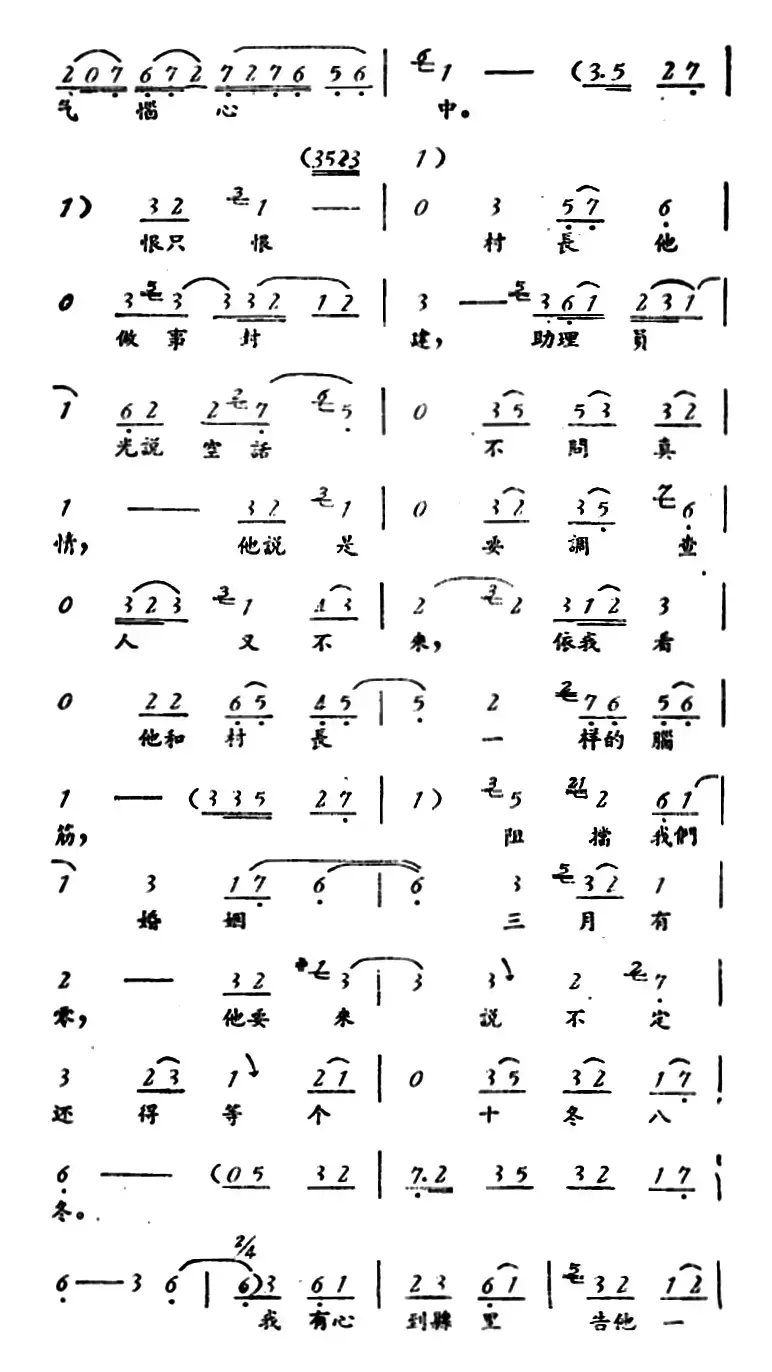 2 0 7 6 7 2 7 2 7 6 5 6 | 6 1 — (3.5 2 7 |
气 惱 心 中。
(3523 1)
1) 3 2 3 1 — | 0 3 5 7 6 |
恨只 恨 村 長 他
0 3 5 3 3 3 2 1 2 | 3 — 5 3 6 1 2 3 1 |
做 事 封 建, 助理 員
1 6 2 2 2 7 6 5 | 0 3 5 5 3 3 2 |
光説 空 話 不 問 真
1 — 3 2 3 1 | 0 3 2 3 5 7 6 |
情, 他説 是 要 調 查
0 3 2 3 3 1 4 3 | 2 3 2 3 1 2 3 |
人 又 不 來, 依我 看
0 2 2 6 5 4 5 | 5 2 2 7 6 5 6 |
他和 村 長 一 样的 腦
1 — (3 3 5 2 7 | 1) 3 5 21 2 6 1 |
筋, 阻 擋 我們
1 3 1 7 6 | 6 3 5 3 2 1 |
婚 姻 三 月 有
2 — 3 2 1 3 | 3 3 2 2 7 |
零, 他要 來 説 不 定
3 2 3 1 2 1 | 0 3 5 3 2 1 7 |
还 得 等 个 十 冬 八
6 — (0 5 3 2 | 7.2 3 5 3 2 1 7 |
冬。
2/4
6 — 3 6 | 6) 3 6 1 | 2 3 6 1 | 5 3 2 1 2 |
我 有心 到縣 里 告他 一